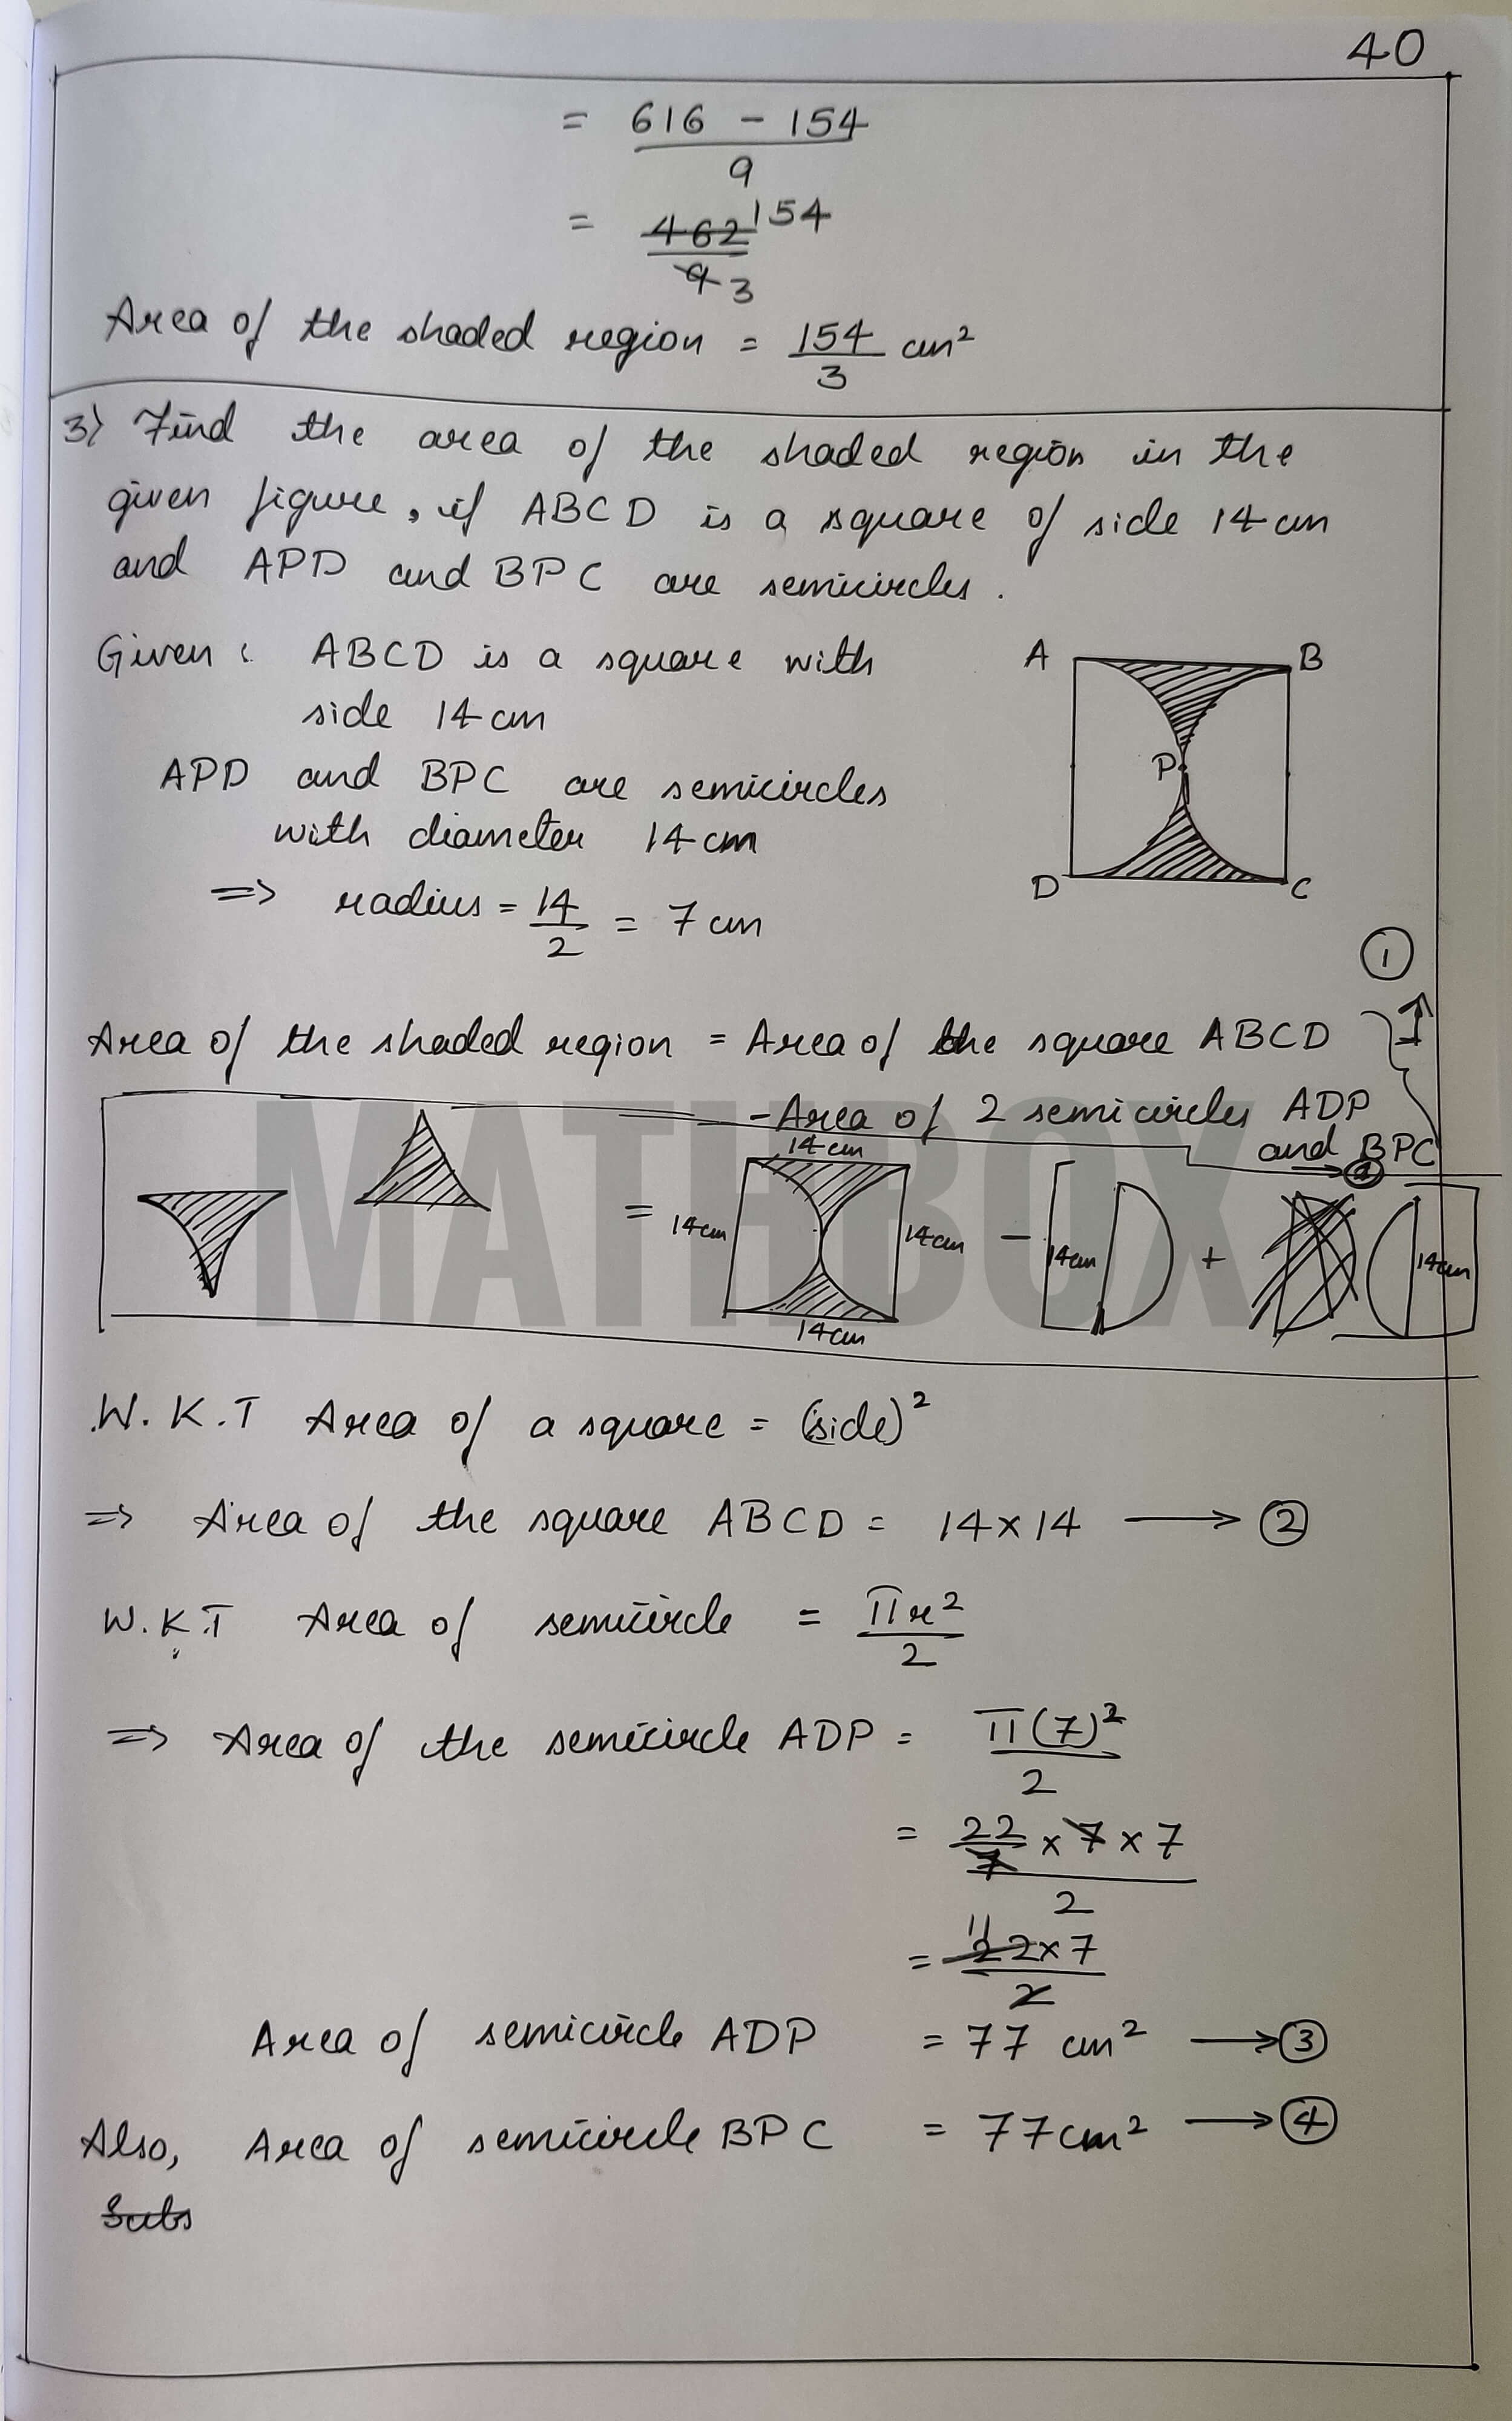 40
= 616 - 154
9
= 462 154
9 3
Area of the shaded region = 154/3 cm²
3) Find the area of the shaded region in the
given figure, if ABCD is a square of side 14 cm
and APD and BPC are semicircles.
Given: ABCD is a square with
side 14 cm
APD and BPC are semicircles
with diameter 14 cm
=> radius = 14/2 = 7 cm
A B
P
D C
1
Area of the shaded region = Area of the square ABCD
- Area of 2 semicircles ADP
and BPC
MATHBOX
= 14cm 14cm 14cm 14cm - 14cm + 14cm
W.K.T Area of a square = (side)²
=> Area of the square ABCD = 14 x 14 → 2
W.K.T Area of semicircle = πr²/2
=> Area of the semicircle ADP = π(7)²
2
= 22/7 x 7 x 7
2
11
= 22 x 7
2
Area of semicircle ADP = 77 cm² → 3
Also, Area of semicircle BPC = 77cm² → 4
Subs